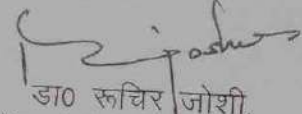 डा० रूचिर जोशी